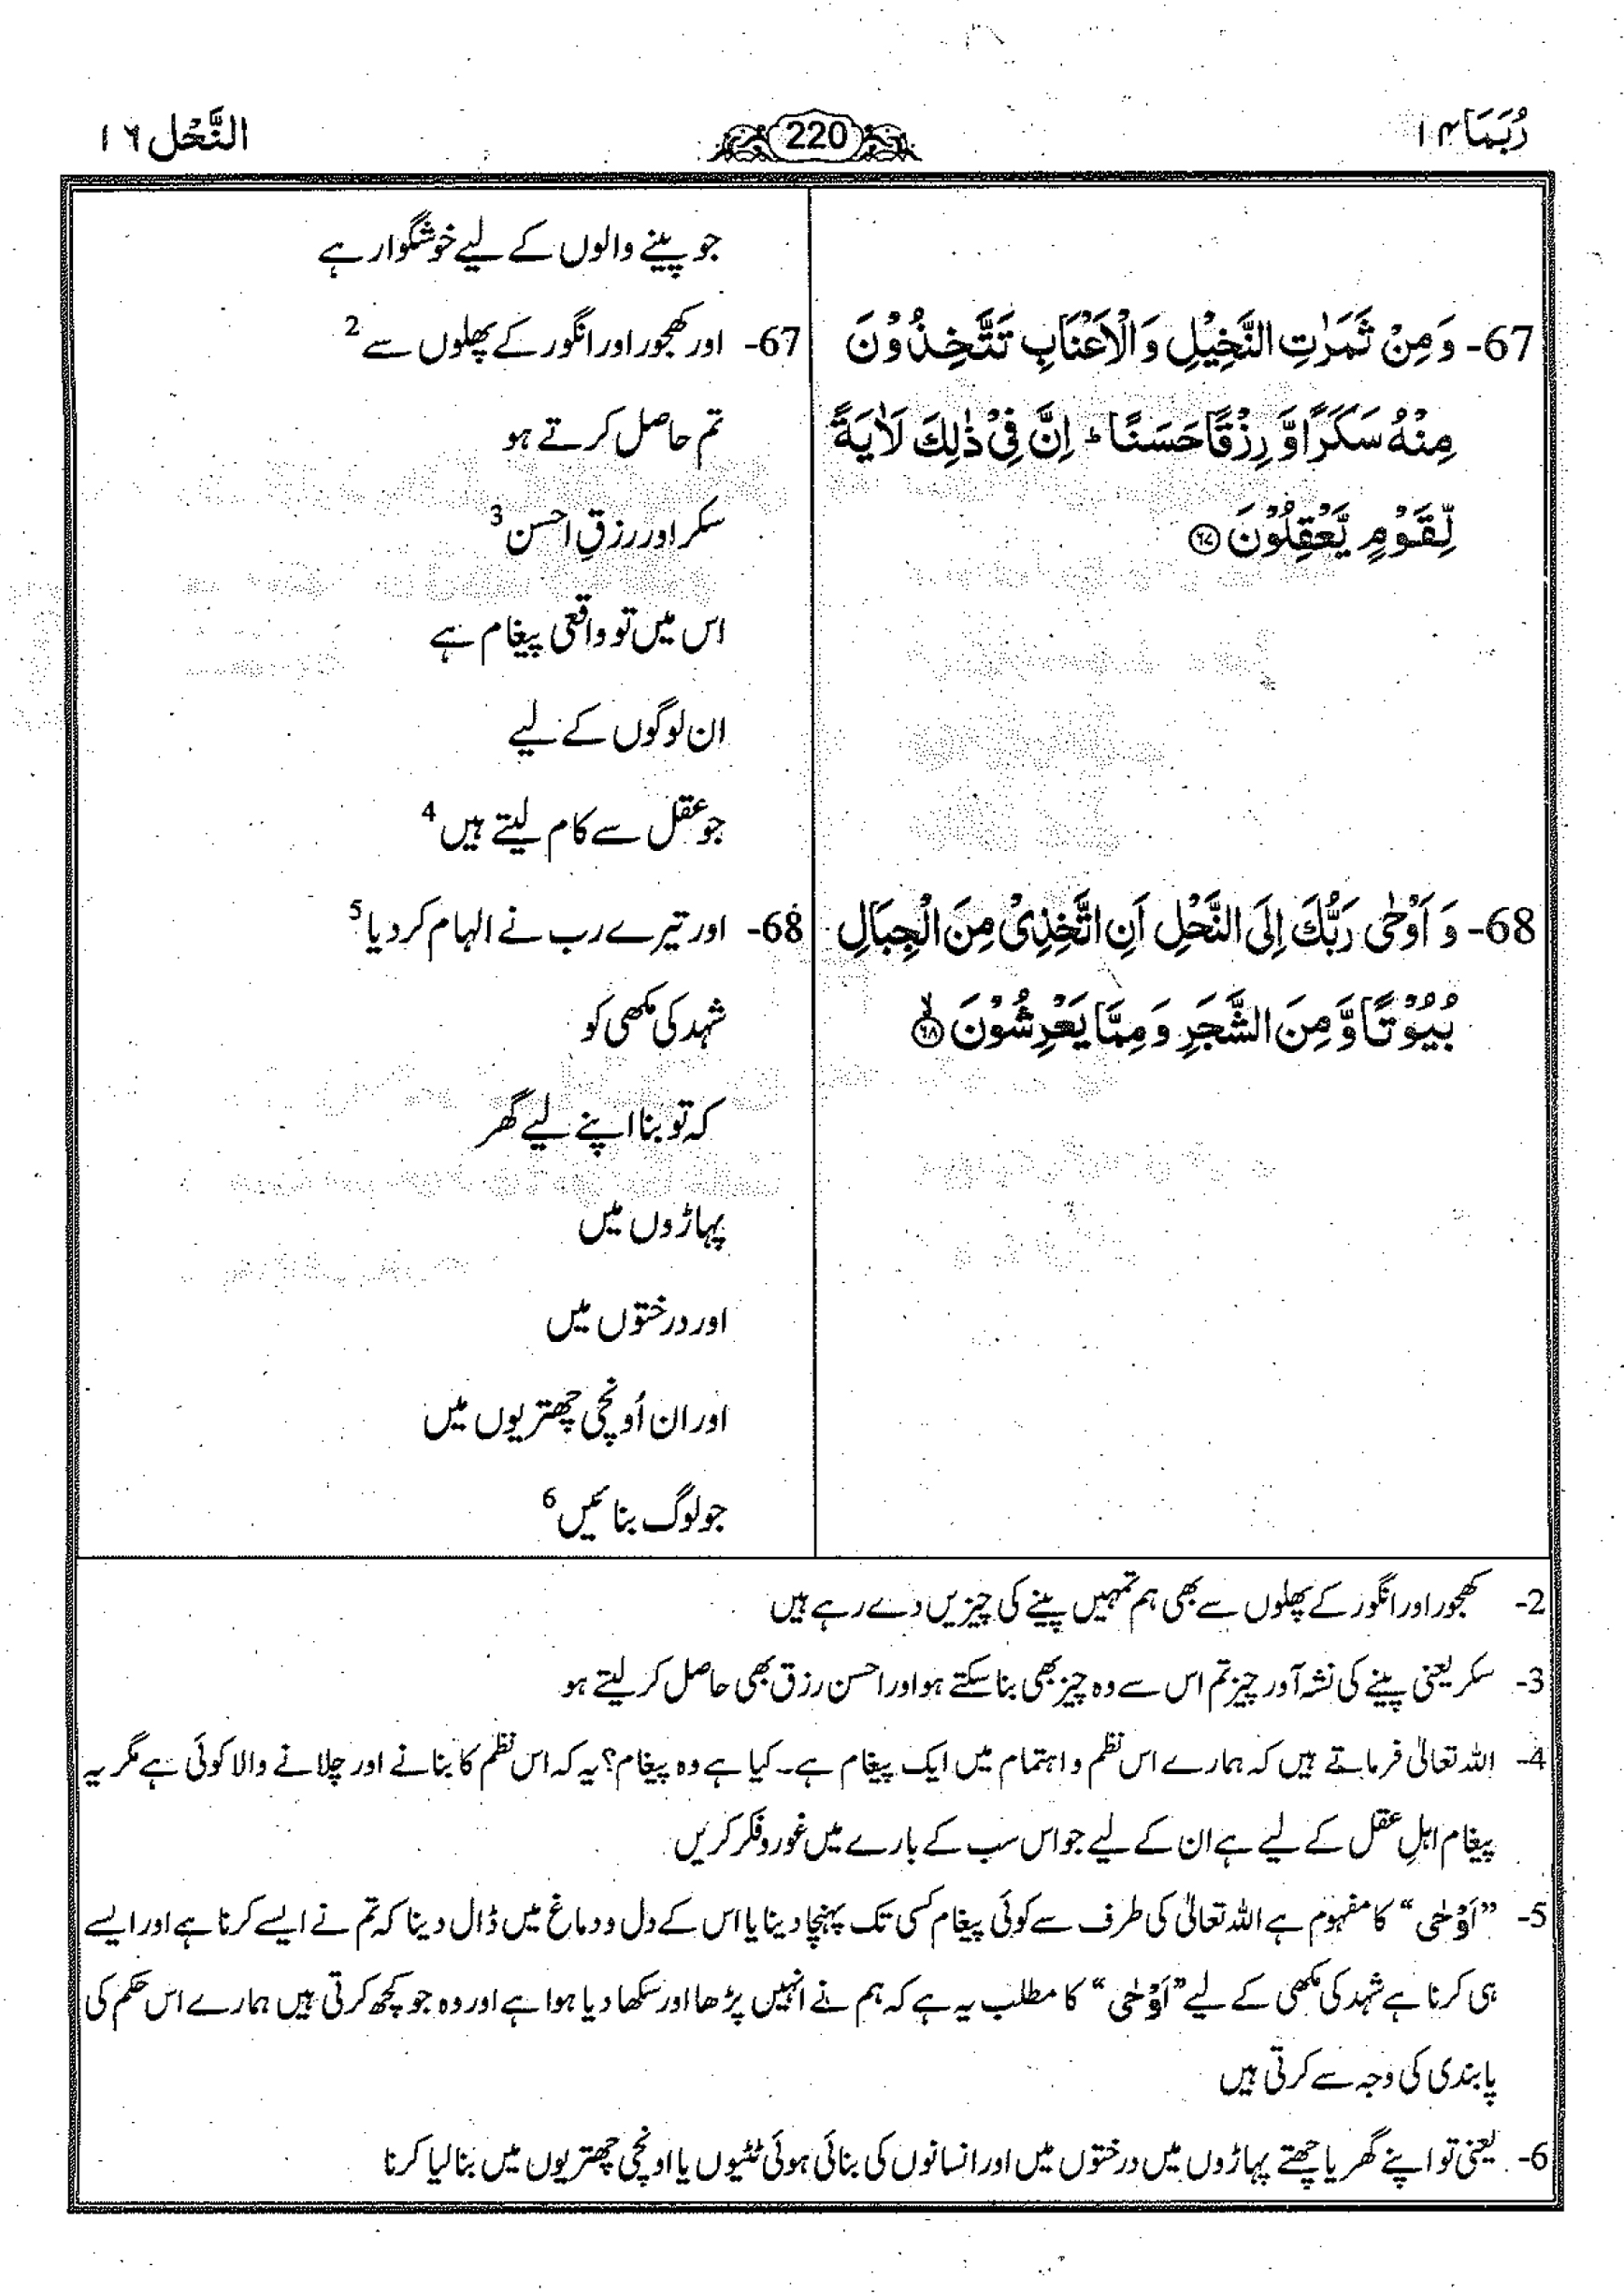 رُبَمَا ۱۴
220
النَّحْل ۱۶
جو پینے والوں کے لیے خوشگوار ہے
67- وَ مِنْ ثَمَرٰتِ النَّخِيْلِ وَ الْاَعْنَابِ تَتَّخِذُوْنَ
مِنْهُ سَكَرًا وَّ رِزْقًا حَسَنًا ؕ اِنَّ فِيْ ذٰلِكَ لَاٰيَةً
لِّقَوْمٍ يَّعْقِلُوْنَ ﴿۶۷﴾
67- اور کھجور اور انگور کے پھلوں سے 2
تم حاصل کرتے ہو
سکر اور رزقِ احسن 3
اس میں تو واقعی پیغام ہے
ان لوگوں کے لیے
جو عقل سے کام لیتے ہیں 4
68- وَ اَوْحٰى رَبُّكَ اِلَى النَّحْلِ اَنِ اتَّخِذِيْ مِنَ الْجِبَالِ
بُيُوْتًا وَّ مِنَ الشَّجَرِ وَ مِمَّا يَعْرِشُوْنَ ﴿۶۸﴾ۙ
68- اور تیرے رب نے الہام کر دیا 5
شہد کی مکھی کو
کہ تو بنا اپنے لیے گھر
پہاڑوں میں
اور درختوں میں
اور ان اُونچی چھتریوں میں
جو لوگ بنائیں 6
2- کھجور اور انگور کے پھلوں سے بھی ہم تمہیں پینے کی چیزیں دے رہے ہیں
3- سکر یعنی پینے کی نشہ آور چیز تم اس سے وہ چیز بھی بنا سکتے ہو اور احسن رزق بھی حاصل کر لیتے ہو
4- اللہ تعالیٰ فرماتے ہیں کہ ہمارے اس نظم و اہتمام میں ایک پیغام ہے۔ کیا ہے وہ پیغام؟ یہ کہ اس نظم کا بنانے اور چلانے والا کوئی ہے مگر یہ
پیغام اہلِ عقل کے لیے ہے ان کے لیے جو اس سب کے بارے میں غور و فکر کریں
5- ”اَوْحٰی“ کا مفہوم ہے اللہ تعالیٰ کی طرف سے کوئی پیغام کسی تک پہنچا دینا یا اس کے دل و دماغ میں ڈال دینا کہ تم نے ایسے کرنا ہے اور ایسے
ہی کرنا ہے شہد کی مکھی کے لیے ”اَوْحٰی“ کا مطلب یہ ہے کہ ہم نے انہیں پڑھا اور سکھا دیا ہوا ہے اور وہ جو کچھ کرتی ہیں ہمارے اس حکم کی
پابندی کی وجہ سے کرتی ہیں
6- یعنی تو اپنے گھر یا چھتے پہاڑوں میں درختوں میں اور انسانوں کی بنائی ہوئی ٹٹیوں یا اونچی چھتریوں میں بنا لیا کرنا